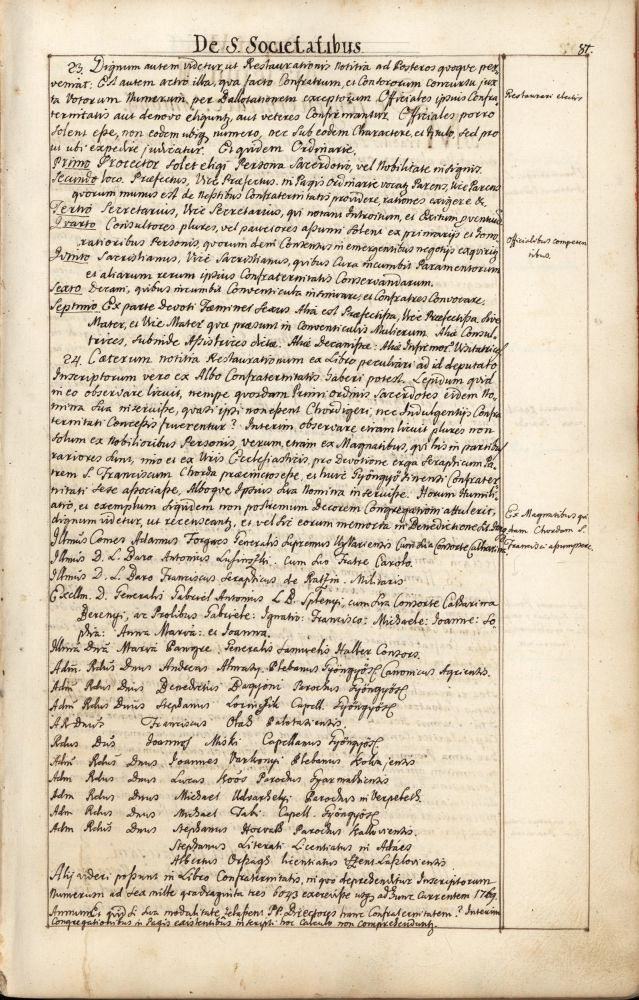 De S. Societatibus
87.
23. Dignum autem videtur, ut Restaurationis notitia ad Posteros quoque per,
veniat: Est autem actio illa, qua facto Confratrum, et Consororum concursu jux
ta Votorum Numerum, per Ballotationem exceptorum Officiales ipsius Confra,
ternitatis aut denovo eliguntʒ, aut veteres Confirmantur. Officiales porro
solent esse, non eodem ubiqʒ numero, nec sub eodem Charactere, et titulo, sed pro
ut ubi expedire judicatur. Et quidem Ordinarie,
Restaurari electis
Primo Protector solet eligi Persona Sacerdotio, vel Nobilitate insignis.
Secundo loco. Præfectus, Vice Præfectus. in Pagis Ordinarie vocatʒ Parens, Vice Parens
quorum munus est de Rebus Confraternitatis providere, rationes exigere &.
Tertio Secretarius, Vice Secretarius, qui notant Introitum, et Exitum
Quarto Consultores plures, vel pauciores assumi solent ex primarijs et hono,
ratioribus Personis, quorum Consensus in emergentibus negotijs exquiritʒ
Quinto Sacristianus, Vice Sacristianus, quibus Cura incumbit Paramentorum
et aliarum rerum ipsius Confraternitatis Conservandarum.
Officialibus competen
tibus.
Sexto Decani, quibus incumbit Conventicula insinuare, et Confratres Convocare.
Septimo Ex parte devoti Fæminei Sexus Alia est Præfectissa, Vice Præfectissa, sive
Mater, et Vice Mater quæ præsunt in Conventiculis Mulierum. Aliæ Consul,
trices, subinde Assistrices dictæ. Aliæ Decanissæ. Aliæ
24. Cæterum notitia Restaurationum ex Libro peculiari ad id deputato
Inscriptorum vero ex Albo Confraternitatis haberi potest. Lepidum quid
in eo observare licuit, nempe quosdam Primi Ordinis Sacerdotes eidem No,
mina sua inseruisse, quasi ipsi non essent Chordigeri, nec Indulgentijs Confra
ternitati Concessis fruerentur? Interim observare etiam licuit plures non
solum ex Nobilioribus Personis, verum etiam ex Magnatibus, qui his in partibus
rariores sunt, imo et ex Viris Ecclesiasticis, pro devotione erga Seraphicum Pa,
trem S. Franciscum Chorda præcinctos esse, et huic Gyöngyösinensi Confrater
nitati sese associasse, Alboqve Ipsius sua Nomina inseruisse. Horum Humili,
atio, et exemplum siquidem non postremum Decorem Congregationi attulerit,
dignum videtur, ut recenseantʒ, et vel sic eorum memoria in Benedictione sit.
Ex Magnatibus qui
dam Chordam S.
Francisci assumpsere.
Illmus Comes Adamus Forgacs Generalis Supremus Ujvariensis Cum sua Consorte Catharina
Illmus D. L. Baro Antonius Lusinszki. cum suo Fratre Carolo.
Illmus D. L. Baro Franciscus Seraphicus de Militaris
Excllm. D. Generalis Gabriel Antonius L. B. Splenyi, cum sua Consorte Catharina
Berenyi, ac Prolibus Gabriele: Ignatio: Francisco: Michaele: Joanne: So,
phia: Anna Maria: et Joanna.
Illma Dna Maria Generalis Samuelis Haller Consors.
Adm. Rdus Dnus Andreas Almasy Plebanus Gyöngyös. Canonicus Agriensis.
Adm Rdus Dnus Benedictus Bagyoni Parochus Gyöngyös
Adm Rdus Dnus Stephanus Lorincsik Capell. Gyöngyös
AR Dnus Franciscus Olah
Rdus Dnus Joannes Miski. Capellanus Gyöngyös.
Adm Rdus Dnus Joannes Varkonyi Plebanus
Adm Rdus Dnus Lucas Koós Parochus Gyarmathiensis
Adm Rdus Dnus Michael Udvarhelyi Parochus in Verpeleth.
Adm Rdus Dnus Michael Tahi. Capell. Gyöngyös
Adm Rdus Dnus Stephanus Horvath Parochus Kalloviensis.
Stephanus Literati Licentiatus in Adacs
Albertus Orszagh licentiatus Szent Laszloviensis
Alij videri possunt in Libro Confraternitatis, in quo deprehenditur Inscriptorum
Numerum ad sex mille quadraginta tres 6043 excrevisse usqʒ ad hunc Currentem 1769.
Annum. Et quid si sua modalitate PP. Directores hanc Confraternitatem? Interim
Congregationibus in Pagis existentibus inscripti hoc Calculo non comprehenduntʒ.